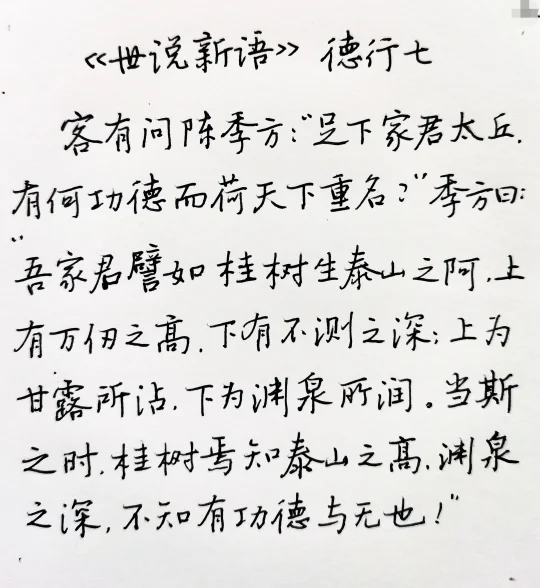 《世说新语》 德行七
客有问陈季方:“足下家君太丘,
有何功德而荷天下重名?”季方曰:
“吾家君譬如桂树生泰山之阿,上
有万仞之高,下有不测之深;上为
甘露所沾,下为渊泉所润。当斯
之时,桂树焉知泰山之高,渊泉
之深,不知有功德与无也!”